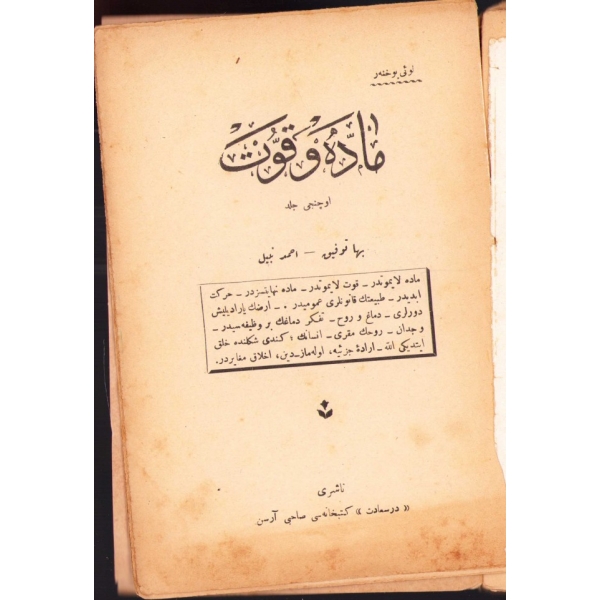 لوئی بوخنەر
مادّه و قوّت
اوچنجی جلد
بها توفیق — احمد نبیل
ماده لایموتدر ـ قوت لایموتدر ـ ماده نهایتسزدر ـ حرکت
ابدیدر ـ طبیعتك قانونلری عمومیدر . ـ ارضك یارادیلیش
دورلری ـ دماغ و روح ـ تفکر دماغك بر وظیفه‌سیدر ـ
وجدان ـ روحك مقری ـ انسانك ؛ کندی شکلنده خلق
ایتدیکی الله ـ ارادهٔ جزئیه، اوله‌ماز ـ دین، اخلاق مغایردر.
ناشری
« درسعادت » کتبخانه‌سی صاحبی آرسن